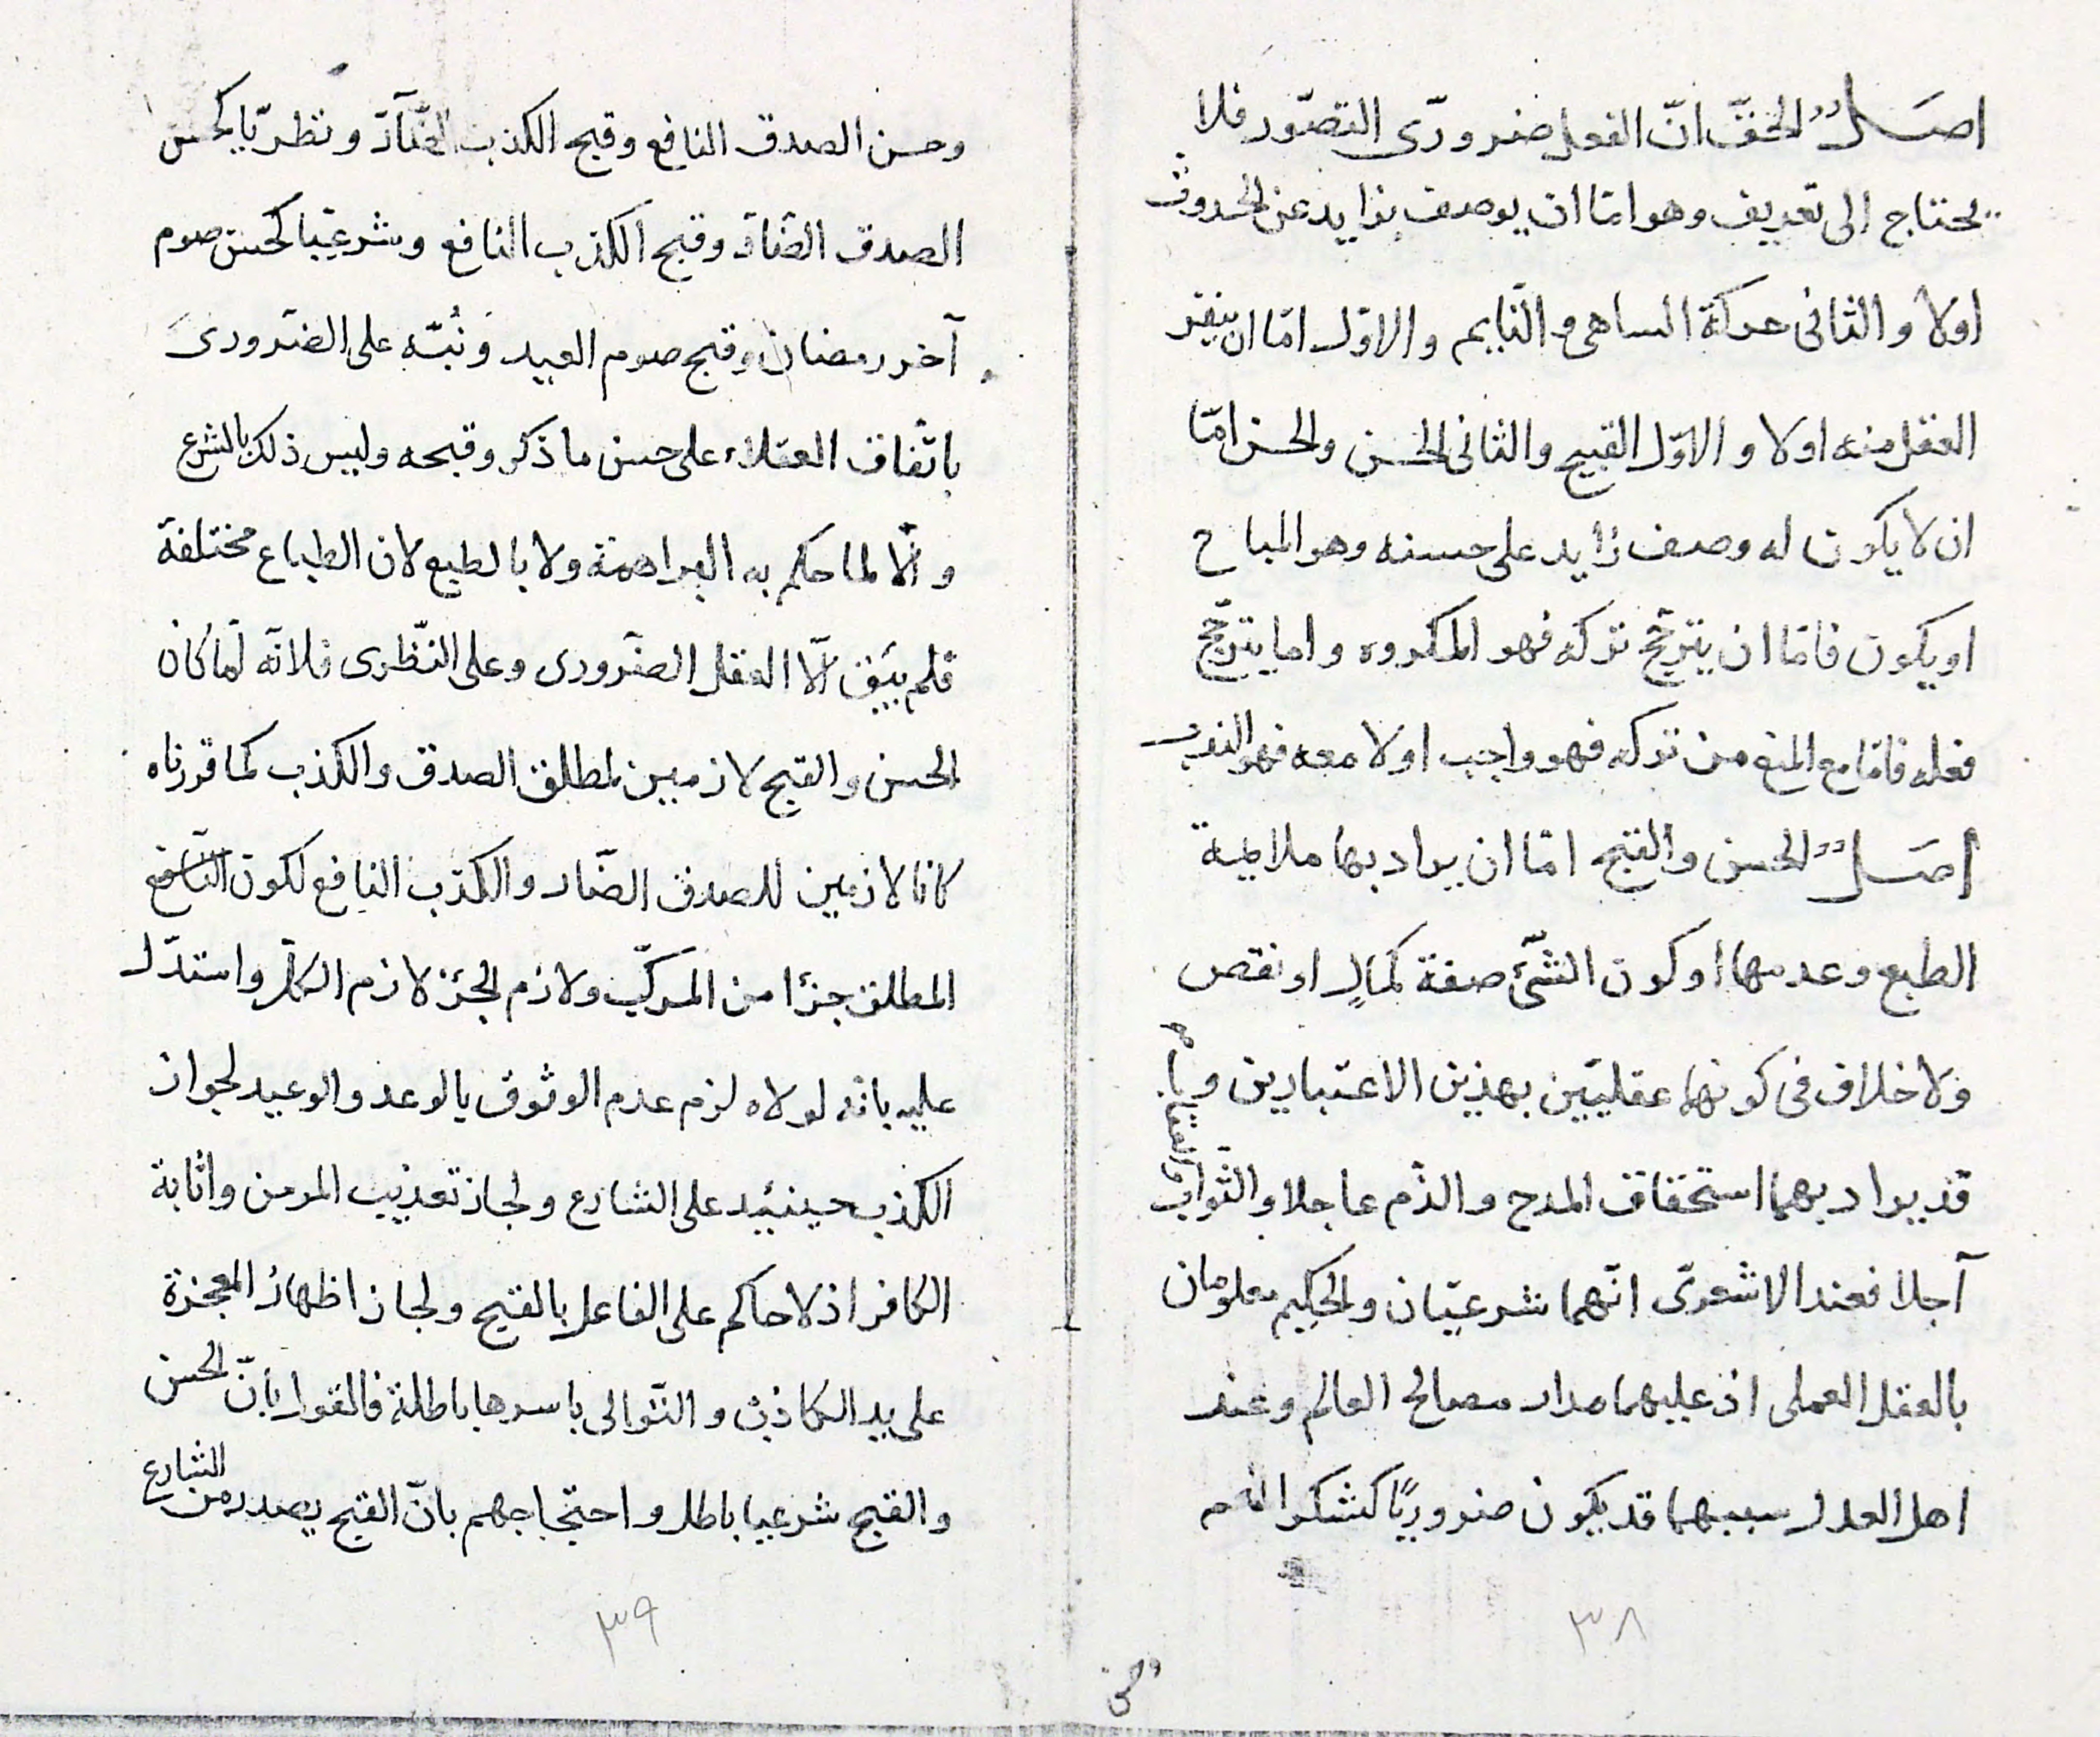 اصل الحقّ انّ الفعل ضرورىّ التصوّر فلا
يحتاج الى تعريف وهو امّا ان يوصف بزايد عن الحدوث
اولا والثانى حركة الساهى والنّايم والاوّل امّا ان ينفر
العقل منه اولا والاوّل القبيح والثانى الحسن والحسن امّا
ان لا يكون له وصف زايد على حسنه وهو المباح
او يكون فامّا ان يترجّح تركه فهو المكروه واما يترجّح
فعله فامّا مع المنع من تركه فهو واجب اولا معه فهو الندب
اصل الحسن والقبح امّا ان يراد بهما ملايمة
الطبع وعدمها او كون الشّئ صفة كمالٍ او نقص
ولا خلاف فى كونهما عقليّين بهذين الاعتبارين و
قد يراد بهما استحقاق المدح والذّم عاجلا والثّواب والعقاب
آجلا فعند الاشعرىّ انّهما شرعيّان والحكيم معلومان
بالعقل العملى اذ عليهما مدار مصالح العالم وعند
اهل العدل سببهما قد يكون ضروريًّا كشكر المنعم
٣٨
وحسن
وحسن الصدق النافع وقبح الكذب الضّآرّ ونظريّا كحسن
الصدق الضّارّ وقبح الكذب النافع وشرعيّا كحسن صوم
آخر رمضان وقبح صوم العيد ونُبّه على الضّرورى
باتّفاق العقلاء على حسن ما ذكر وقبحه وليس ذلك بالشرع
والّا لما حكم به البراهمة ولا بالطبع لان الطباع مختلفة
فلم يبق الّا العقل الضّرورى وعلى النّظرى فلانّه لمّا كان
الحسن والقبح لازمين لمطلق الصدق والكذب كما قرّرناه
كانا لازمين للصدق الضّار والكذب النافع لكون النّافع
المطلق جزءا من المركّب ولازم الجزء لازم الكلّ واستدّل
عليه بانّه لولاه لزم عدم الوثوق بالوعد والوعيد لجواز
الكذب حينئيد على الشارع ولجاز تعذيب المومن واثابة
الكافر اذ لا حاكم على الفاعل بالقبح ولجاز اظهار المعجزة
على يد الكاذب والتّوالى باسرها باطلة فالقول بانّ الحسن
والقبح شرعيا باطل واحتجاجهم بانّ القبح يصدر من الشارع
٣٩